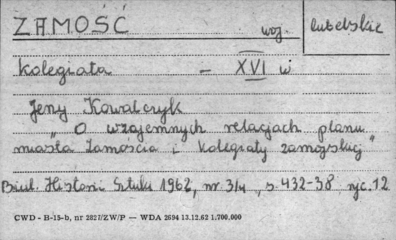 ZAMOŚĆ woj. lubelskie
Kolegiata – XVI w
Jerzy Kowalczyk
"O wzajemnych relacjach planu
miasta Zamościa i Kolegiaty zamojskiej"
Biul. Historii Sztuki 1962, nr 3/4, s. 432-38 ryc. 12
CWD - B-15-b, nr 2827/ZW/P — WDA 2694 13.12.62 1.700.000